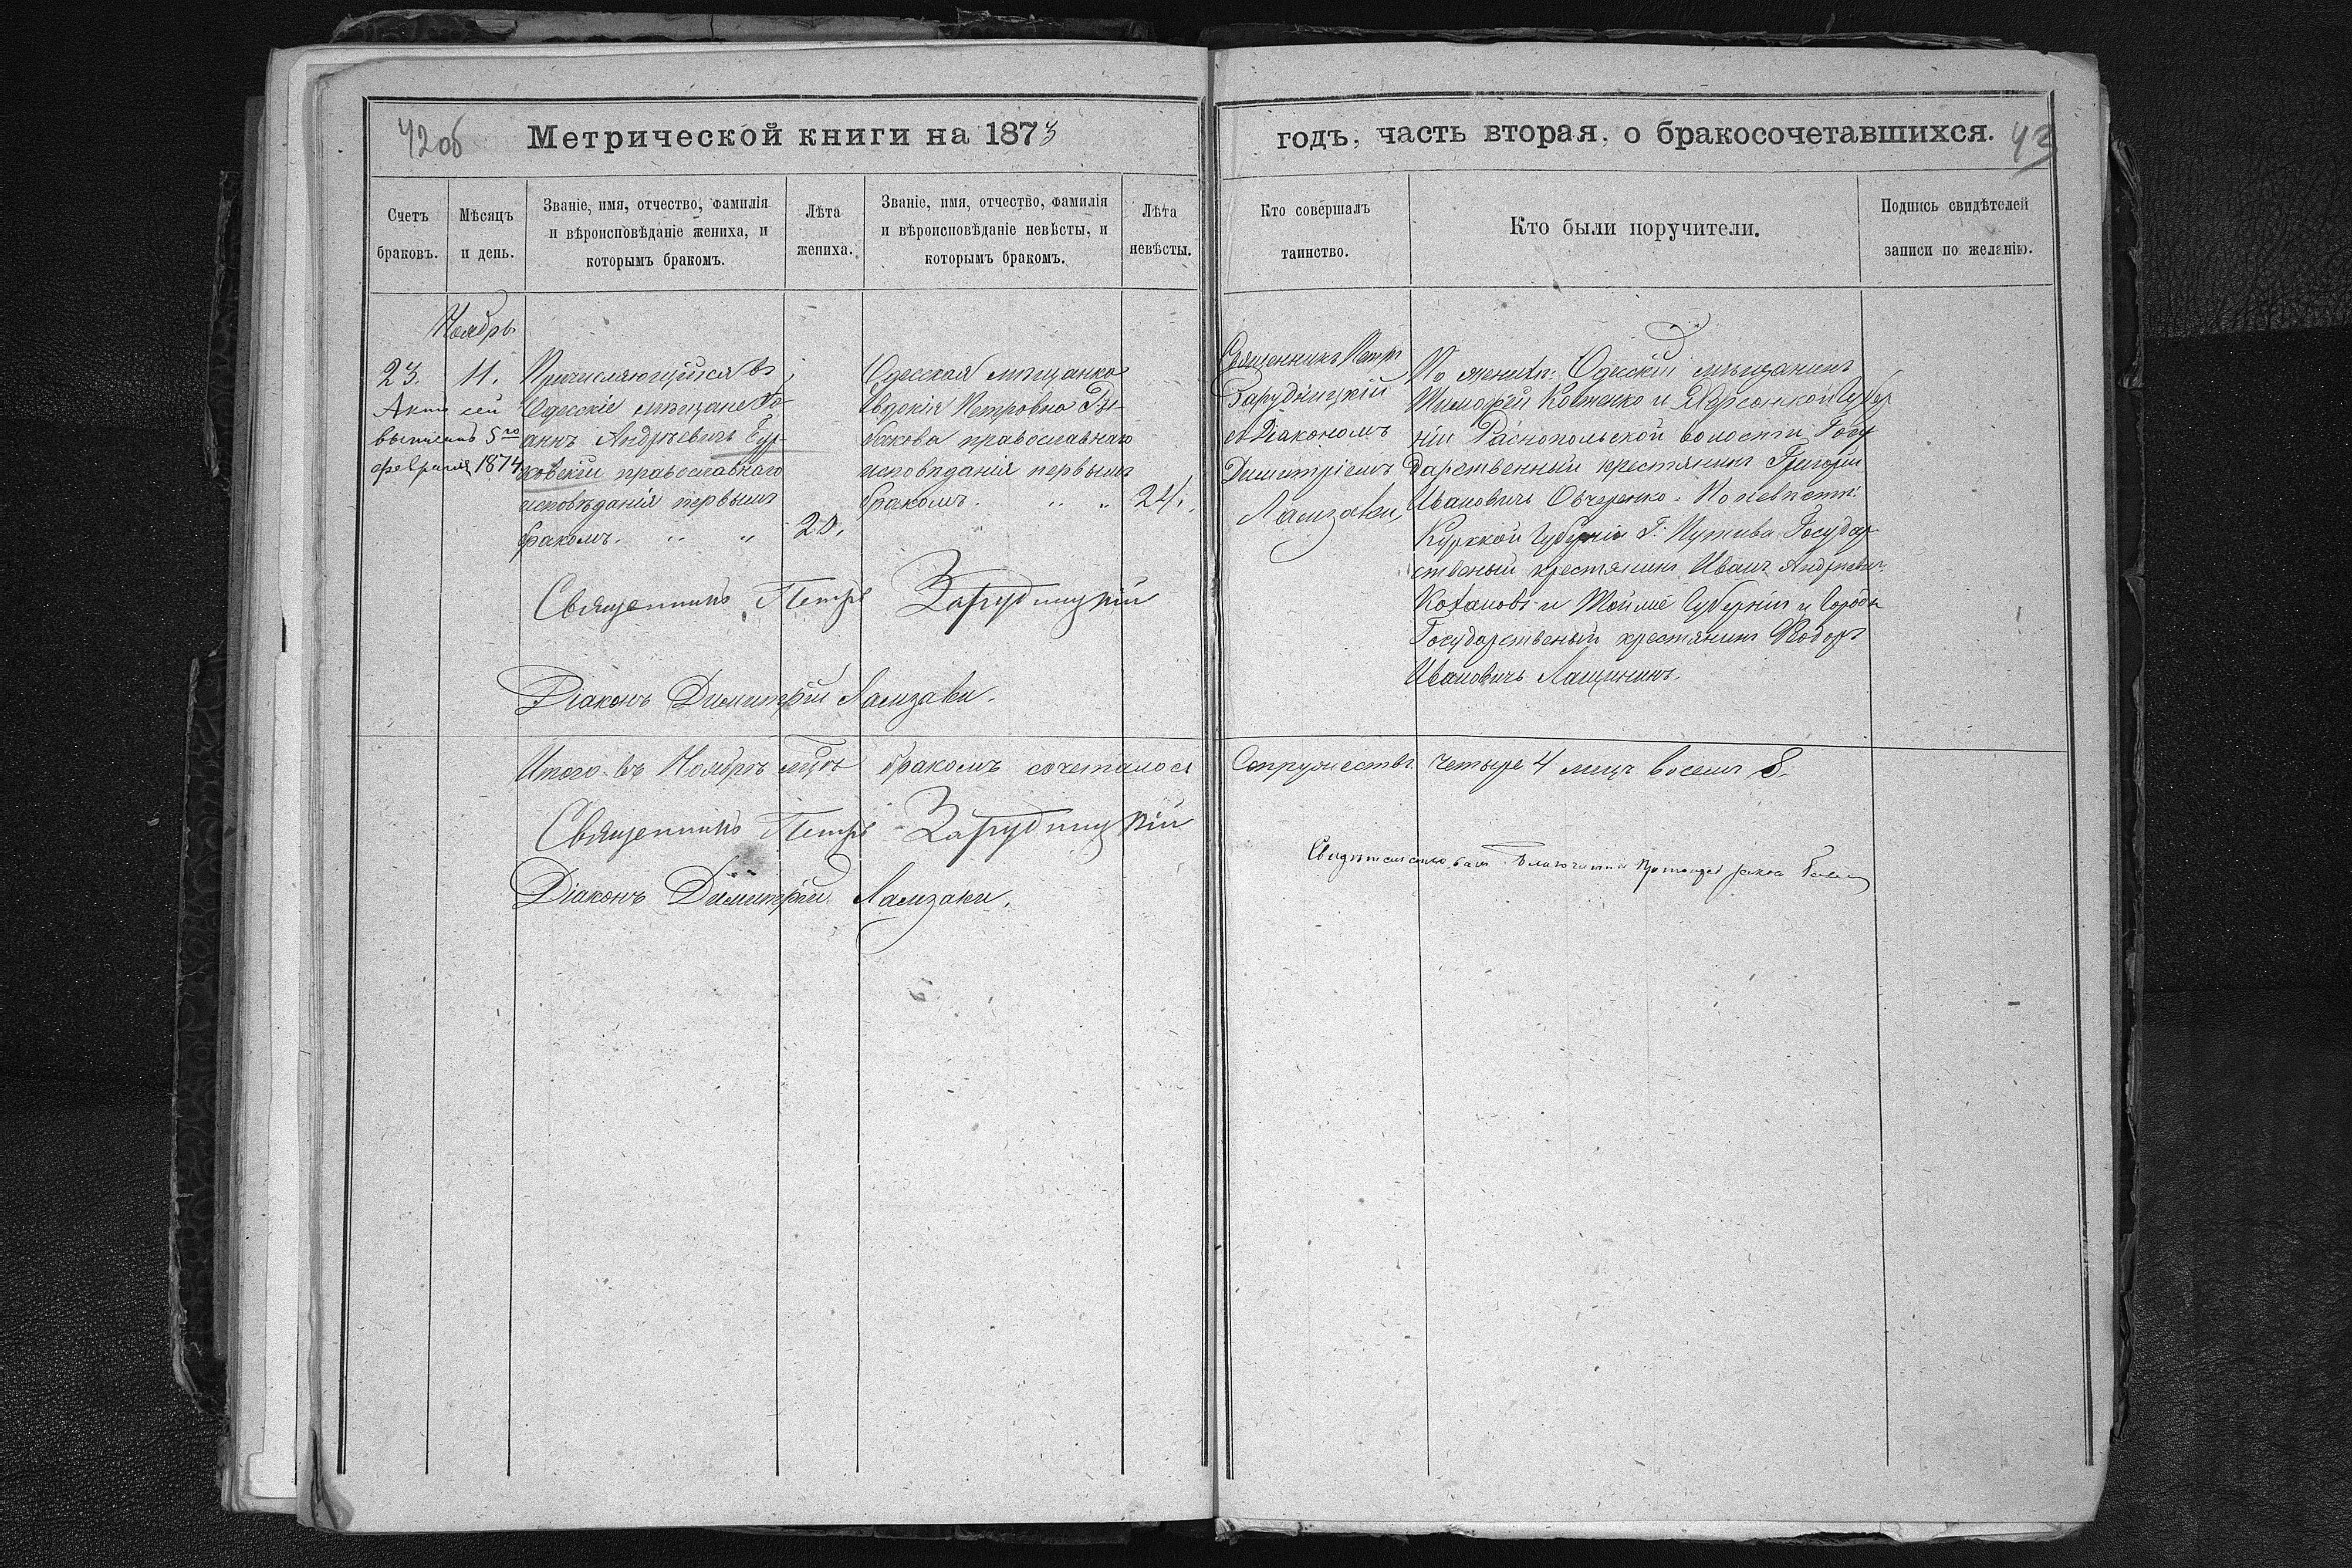 42 об
Метрической книги на 1873
годъ, часть вторая, о бракосочетавшихся.
43
Счетъ
браковъ.
Мѣсяцъ
и день.
Званіе, имя, отчество, фамилія
и вѣроисповѣданіе жениха, и
которымъ бракомъ.
Лѣта
жениха.
Званіе, имя, отчество, фамилія
и вѣроисповѣданіе невѣсты, и
которымъ бракомъ.
Лѣта
невѣсты.
Кто совершалъ
таинство.
Кто были поручители.
Подпись свидѣтелей
записи по желанію.
Ноябрь
23. 11.
Актъ сей
выписанъ 5го
февраля 1874
Причисляющійся въ
Одесскіе мѣщане Іо-
аннъ Андрѣевичъ Бур-
ковскій православнаго
исповѣданія первымъ
бракомъ. " "
20.
Одесская мѣщанка
Евдокія Петровна
православнаго
исповѣданія первымъ
бракомъ. " "
24.
Священникъ Петръ
Зарудницкій
съ Діакономъ
Димитріемъ
Ламзаки,
По женихѣ: Одесскій мѣщанинъ
Тимофей Костенко и Херсонской Губер
ніи Раснопольской волости Госу
дарственный крестянинъ Григорій
Ивановичъ Овчеренко. По невѣстѣ:
Курской Губерніи Г. Путива Государ
ственый крестянинъ Иванъ Андреевич
Кохановъ и Той же Губерніи и Города
Государственый крестянинъ Феодоръ
Ивановичъ Лащининъ.
Священникъ Петръ Зарудницкій
Діаконъ Димитрій Ламзаки.
Итого въ Ноябрѣ мцѣ бракомъ сочеталося
Супружествъ четыре 4 лицъ восемъ 8.
Священникъ Петръ Зарудницкій
Діаконъ Димитрій Ламзаки.
Свидѣтельствовалъ Благочинный Протоіерей